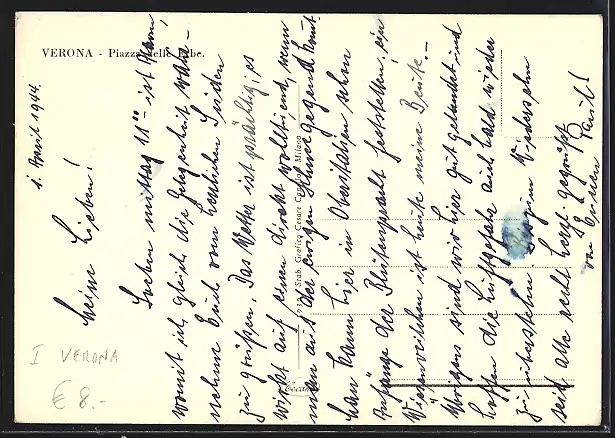 VERONA - Piazza delle Erbe.
1. April 1944.
Meine Lieben!
Soeben mittag 11°° ist
womit ich gleich die Gelegenheit wahr-
nehme Euch vom herrlichen Süden
zu grüßen. Das Wetter ist prächtig, es
wirkt auf einen direkt wolltuend, wenn
man aus der ewigen Schneegegend kommt.
Man kann hier in Oberitalien schon
Anfänge der Blütenpracht feststellen, ein
Wiesenveilchen ist heute meine Beute. -
Übrigens sind wir hier gut gelandet und
hoffen die Luftgefahr auch bald wieder
zu überstehen. Wiedersehn
seid alle recht herzl. gegrüßt
von Eurem Pauli!
1937 Stab. Grafico Cesare Capello Milano
I VERONA
€ 8.-